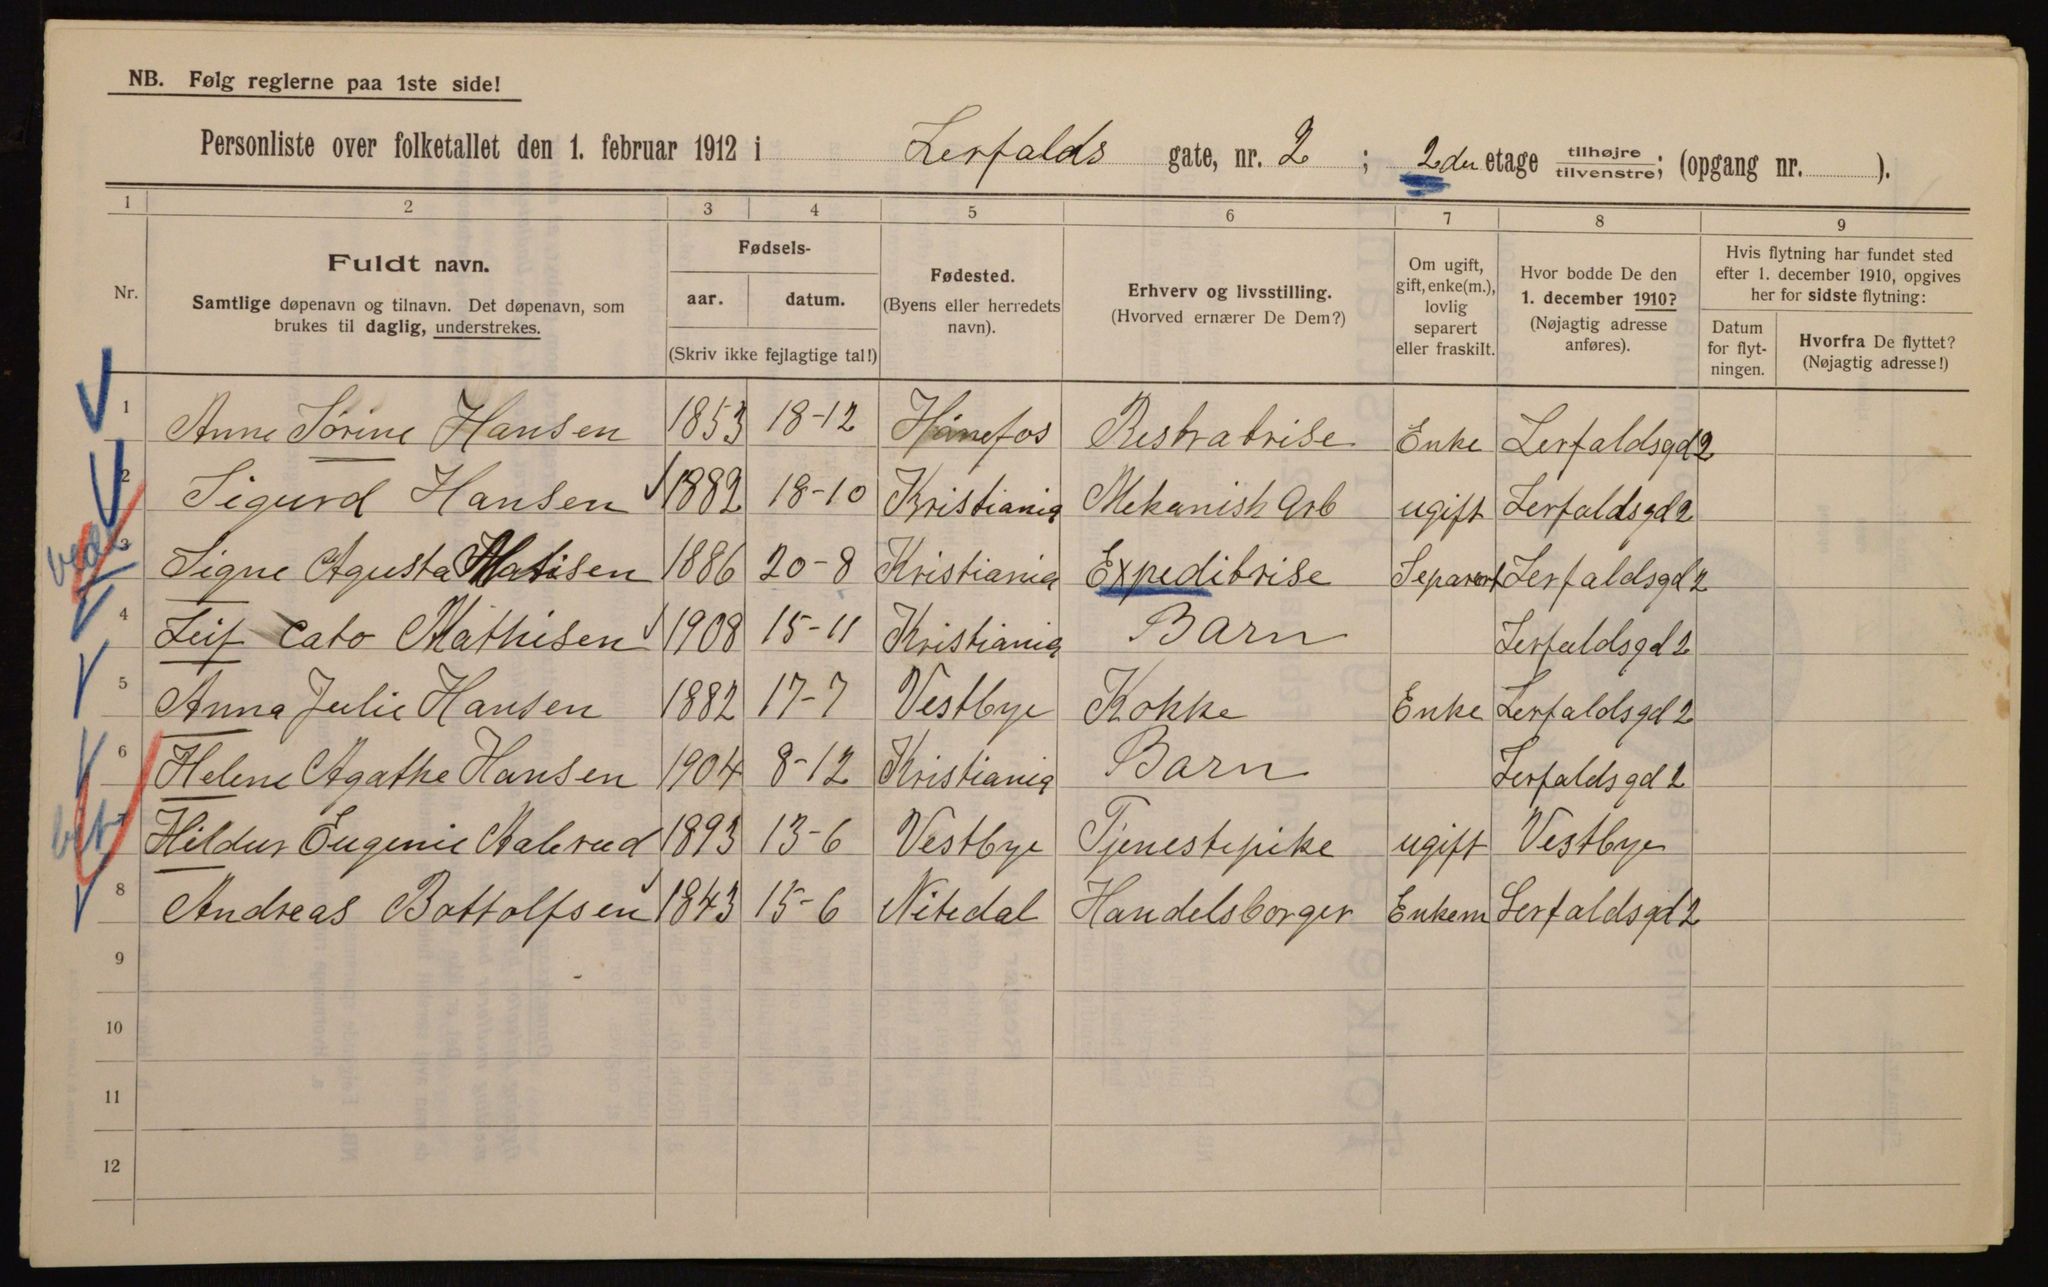 NB. Følg reglerne paa 1ste side!
Personliste over folketallet den 1. februar 1912 i Lerfalds gate, nr. 2 ; 2den etage tilhøjre tilvenstre; (opgang nr. ).
1 2 3 4 5 6 7 8 9
Nr.
Fuldt navn.
Samtlige døpenavn og tilnavn. Det døpenavn, som
brukes til daglig, understrekes.
Fødsels-
aar. datum.
(Skriv ikke fejlagtige tal!)
Fødested.
(Byens eller herredets
navn).
Erhverv og livsstilling.
(Hvorved ernærer De Dem?)
Om ugift,
gift, enke(m.),
lovlig
separert
eller fraskilt.
Hvor bodde De den
1. december 1910?
(Nøjagtig adresse
anføres).
Hvis flytning har fundet sted
efter 1. december 1910, opgives
her for sidste flytning:
Datum
for flyt-
ningen.
Hvorfra De flyttet?
(Nøjagtig adresse!)
1 Anne Sørine Hansen 1853 18-12 Hønefos Restratrise Enke Lerfaldsgd 2
2 Sigurd Hansen 1882 18-10 Kristiania Mekanisk Arb ugift Lerfaldsgd 2
3 Signe Agusta Matisen 1886 20-8 Kristiania Expeditrise Separert Lerfaldsgd 2
4 Leif Cato Mathisen 1908 15-11 Kristiania Barn Lerfaldsgd 2
5 Anna Julie Hansen 1882 17-7 Vestbye Kokke Enke Lerfaldsgd 2
6 Helene Agathe Hansen 1904 8-12 Kristiania Barn Lerfaldsgd 2
7 Hildur Eugenie 1893 13-6 Vestbye Tjenestepike ugift Vestbye
8 Andreas Bottolfsen 1843 15-6 Nitedal Handelsborger Enkem Lerfaldsgd 2
9
10
11
12